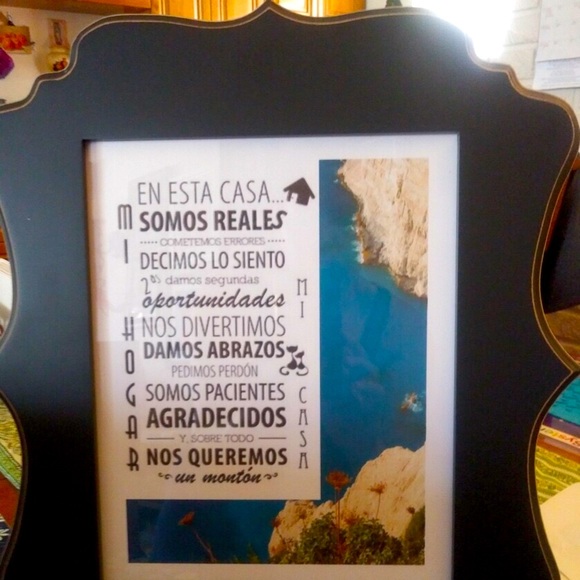 EN ESTA CASA...
SOMOS REALES
COMETEMOS ERRORES
DECIMOS LO SIENTO
2as damos segundas
oportunidades
NOS DIVERTIMOS
DAMOS ABRAZOS
PEDIMOS PERDÓN
SOMOS PACIENTES
AGRADECIDOS
Y, SOBRE TODO
NOS QUEREMOS
un montón
MI HOGAR
MI CASA